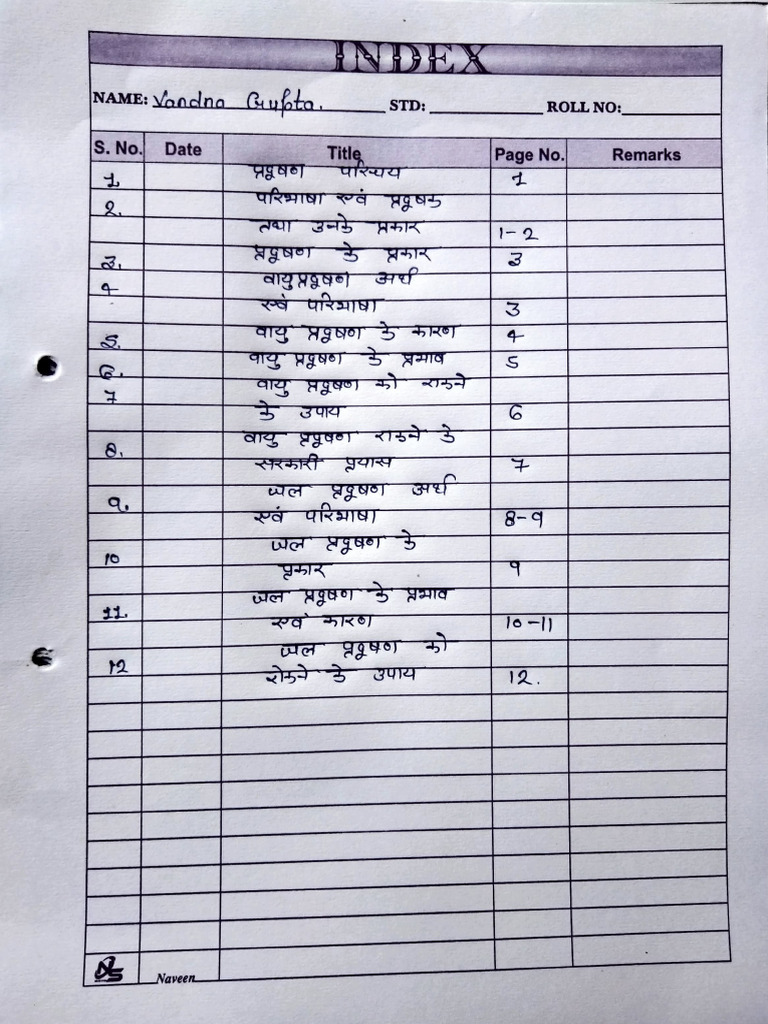 INDEX
NAME: Vandna Gupta. STD: ROLL NO:
S. No. Date Title Page No. Remarks
1. प्रदूषण परिचय 1
2. परिभाषा एवं प्रदूषक
तथा उनके प्रकार 1-2
3. प्रदूषण के प्रकार 3
4 वायु प्रदूषण अर्थ
एवं परिभाषा 3
5. वायु प्रदूषण के कारण 4
6. वायु प्रदूषण के प्रभाव 5
7 वायु प्रदूषण को रोकने
के उपाय 6
8. वायु प्रदूषण रोकने के
सरकारी प्रयास 7
9. जल प्रदूषण अर्थ
एवं परिभाषा 8-9
10 जल प्रदूषण के
प्रकार 9
11. जल प्रदूषण के प्रभाव
एवं कारण 10-11
12 जल प्रदूषण को
रोकने के उपाय 12.
Naveen